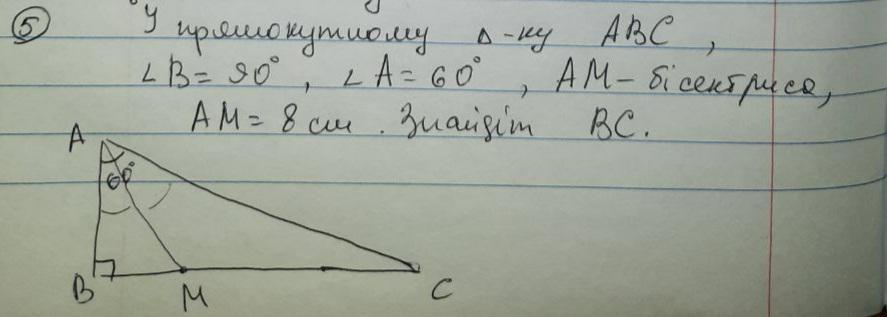 5 У прямокутному Δ-ку ABC,
∠B = 90°, ∠A = 60°, AM – бісектриса,
AM = 8 см. Знайдіт BC.
A
60°
B M C